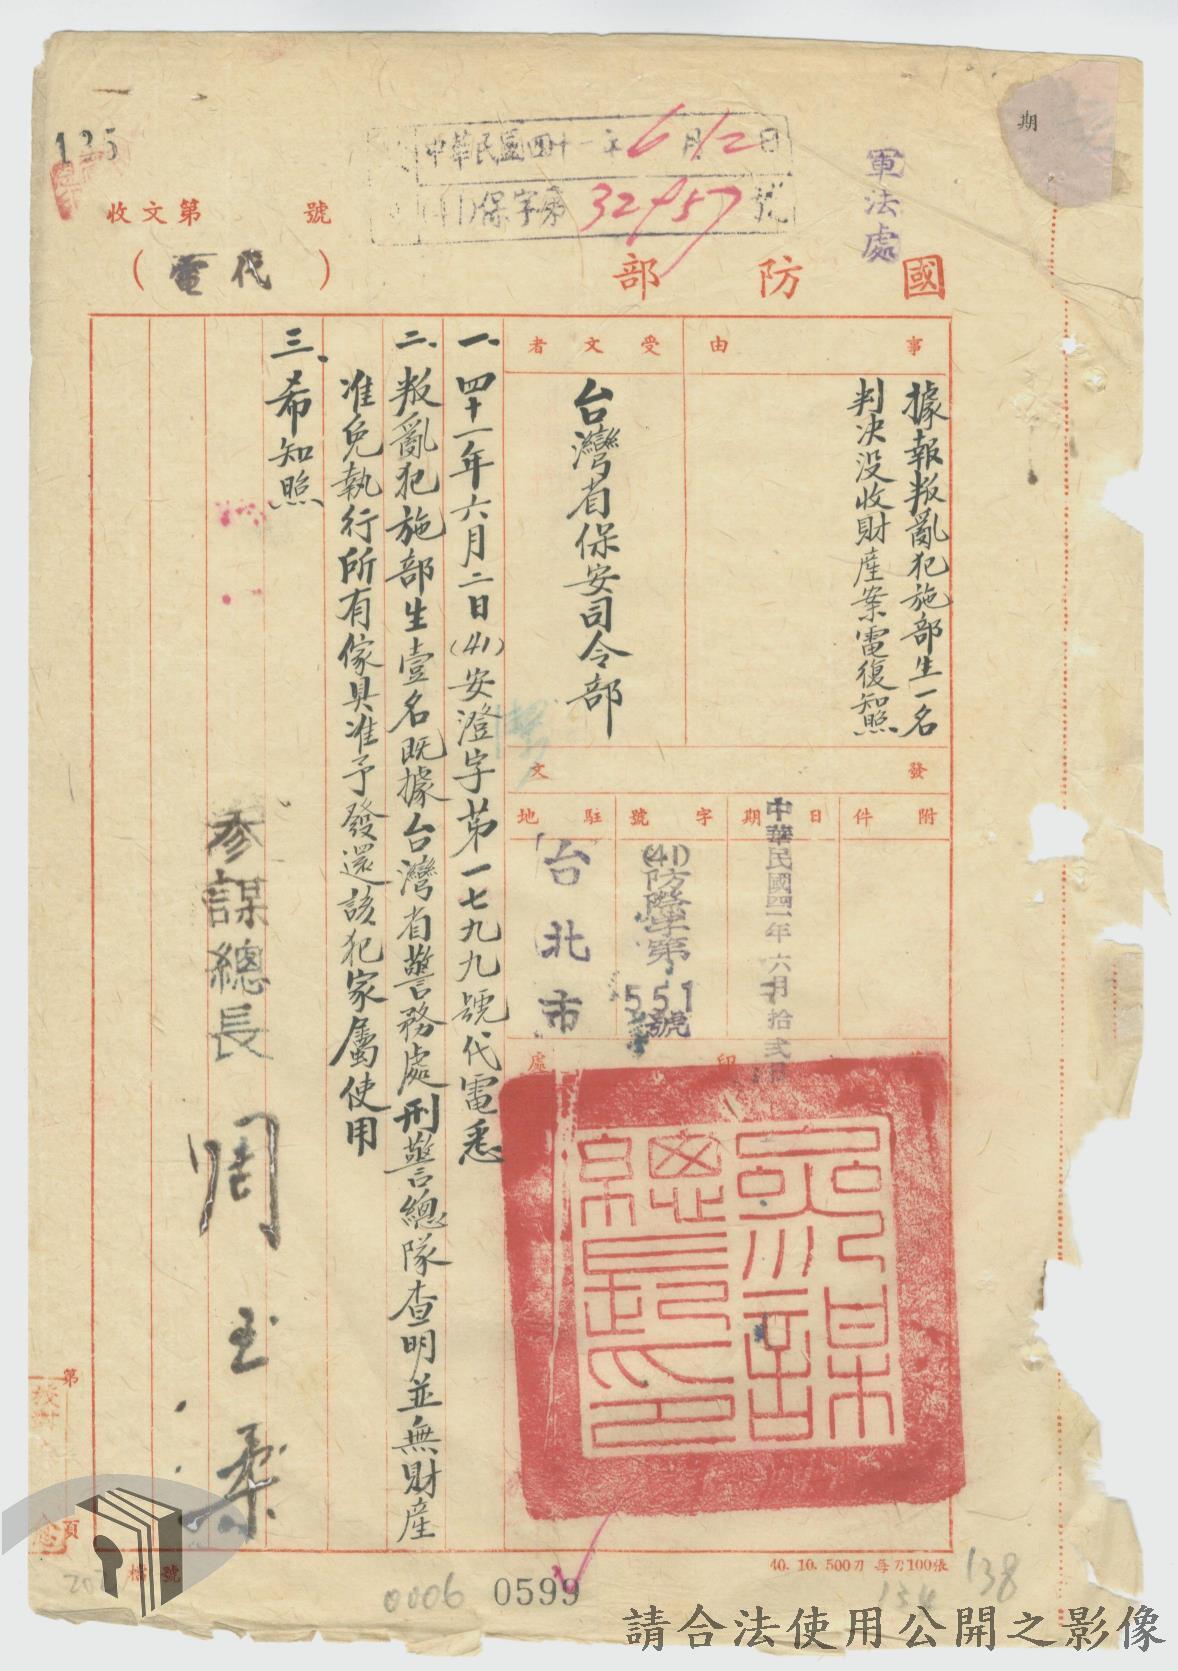 135
中華民國四十一年6月12日
(41)保字第32457號
軍法處
期
收文第 號
國防部
(代電)
事由
據報叛亂犯施部生一名
判決沒收財產案電復知照
受文者
台灣省保安司令部
發文
附件
日期
中華民國四一年六月拾弍日
字號
(41)防隆字第551號
駐地
台北市
印
處
參謀總長之印
一、四十一年六月二日(41)安澄字第一七九九號代電悉
二、叛亂犯施部生壹名既據台灣省警務處刑警總隊查明並無財產
准免執行所有傢具准予發還該犯家屬使用
三、希知照
參謀總長 周至柔
第 頁
檔號
40. 10. 500刀 每刀100張
0006
0599
134
138
請合法使用公開之影像